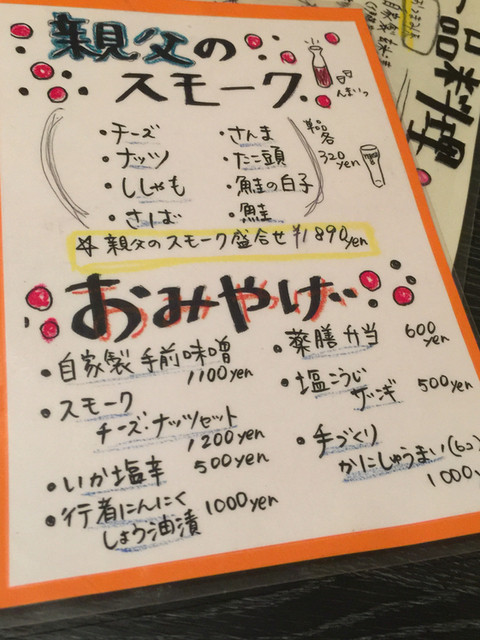 親父の
スモーク
んまいっ
・チーズ
・ナッツ
・ししゃも
・さば
・さんま
・たこ頭
・鮭の白子
・鮭
単品
各
320yen
☆親父のスモーク盛合せ ¥1890yen
おみやげ
・自家製手前味噌
1100yen
・スモーク
チーズ・ナッツセット
1200yen
・いか塩辛 500yen
・行者にんにく 1000yen
しょう油漬
・薬膳弁当 600
yen
・塩こうじ
ザンギ 500yen
・手づくり
かにしゅうまい(6コ)
1000
一品料理